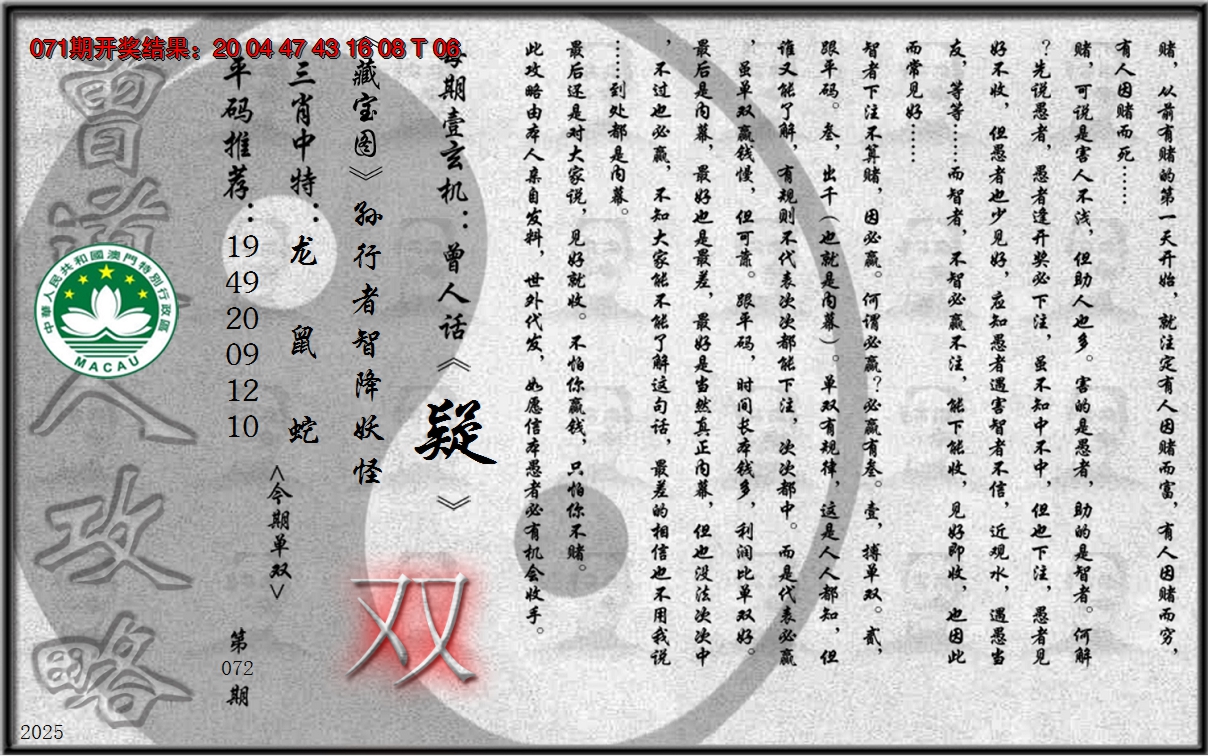 071期开奖结果：20 04 47 43 16 08 T 06
赌，从前有赌的第一天开始，就注定有人因赌而富，有人因赌而穷，
有人因赌而死……
赌，可说是害人不浅，但助人也多。害的是愚者，助的是智者。何解
？先说愚者，愚者逢开奖必下注，虽不知中不中，但也下注，愚者见
好不收，但愚者也少见好，应知愚者遇害智者不信，近观水，遇愚当
友，等等……而智者，不智必赢不注，能下能收，见好即收，也因此
而常见好……
智者下注不算赌，因必赢。何谓必赢？必赢有叁。壹，搏单双。贰，
跟平码。叁，出千（也就是内幕）。单双有规律，这是人人都知，但
谁又能了解，有规则不代表次次都能下注，次次都中。而是代表必赢
，虽单双赢钱慢，但可靠。跟平码，时间长本钱多，利润比单双好。
最后是内幕，最好也是最差，最好是当然真正内幕，但也没法次次中
，不过也必赢，不知大家能不能了解这句话，最差的相信也不用我说
……到处都是内幕。
最后还是对大家说，见好就收。不怕你赢钱，只怕你不赌。
此攻略由本人亲自发料，世外代发，如愿信本愚者必有机会收手。
每期壹玄机：曾人话《疑》
《藏宝图》孙行者智降妖怪
双
三肖中特：龙 鼠 蛇
<今期单双>
平码推荐：19 49 20 09 12 10
第072期
曾道人攻略
中華人民共和國澳門特別行政區
MACAU
2025